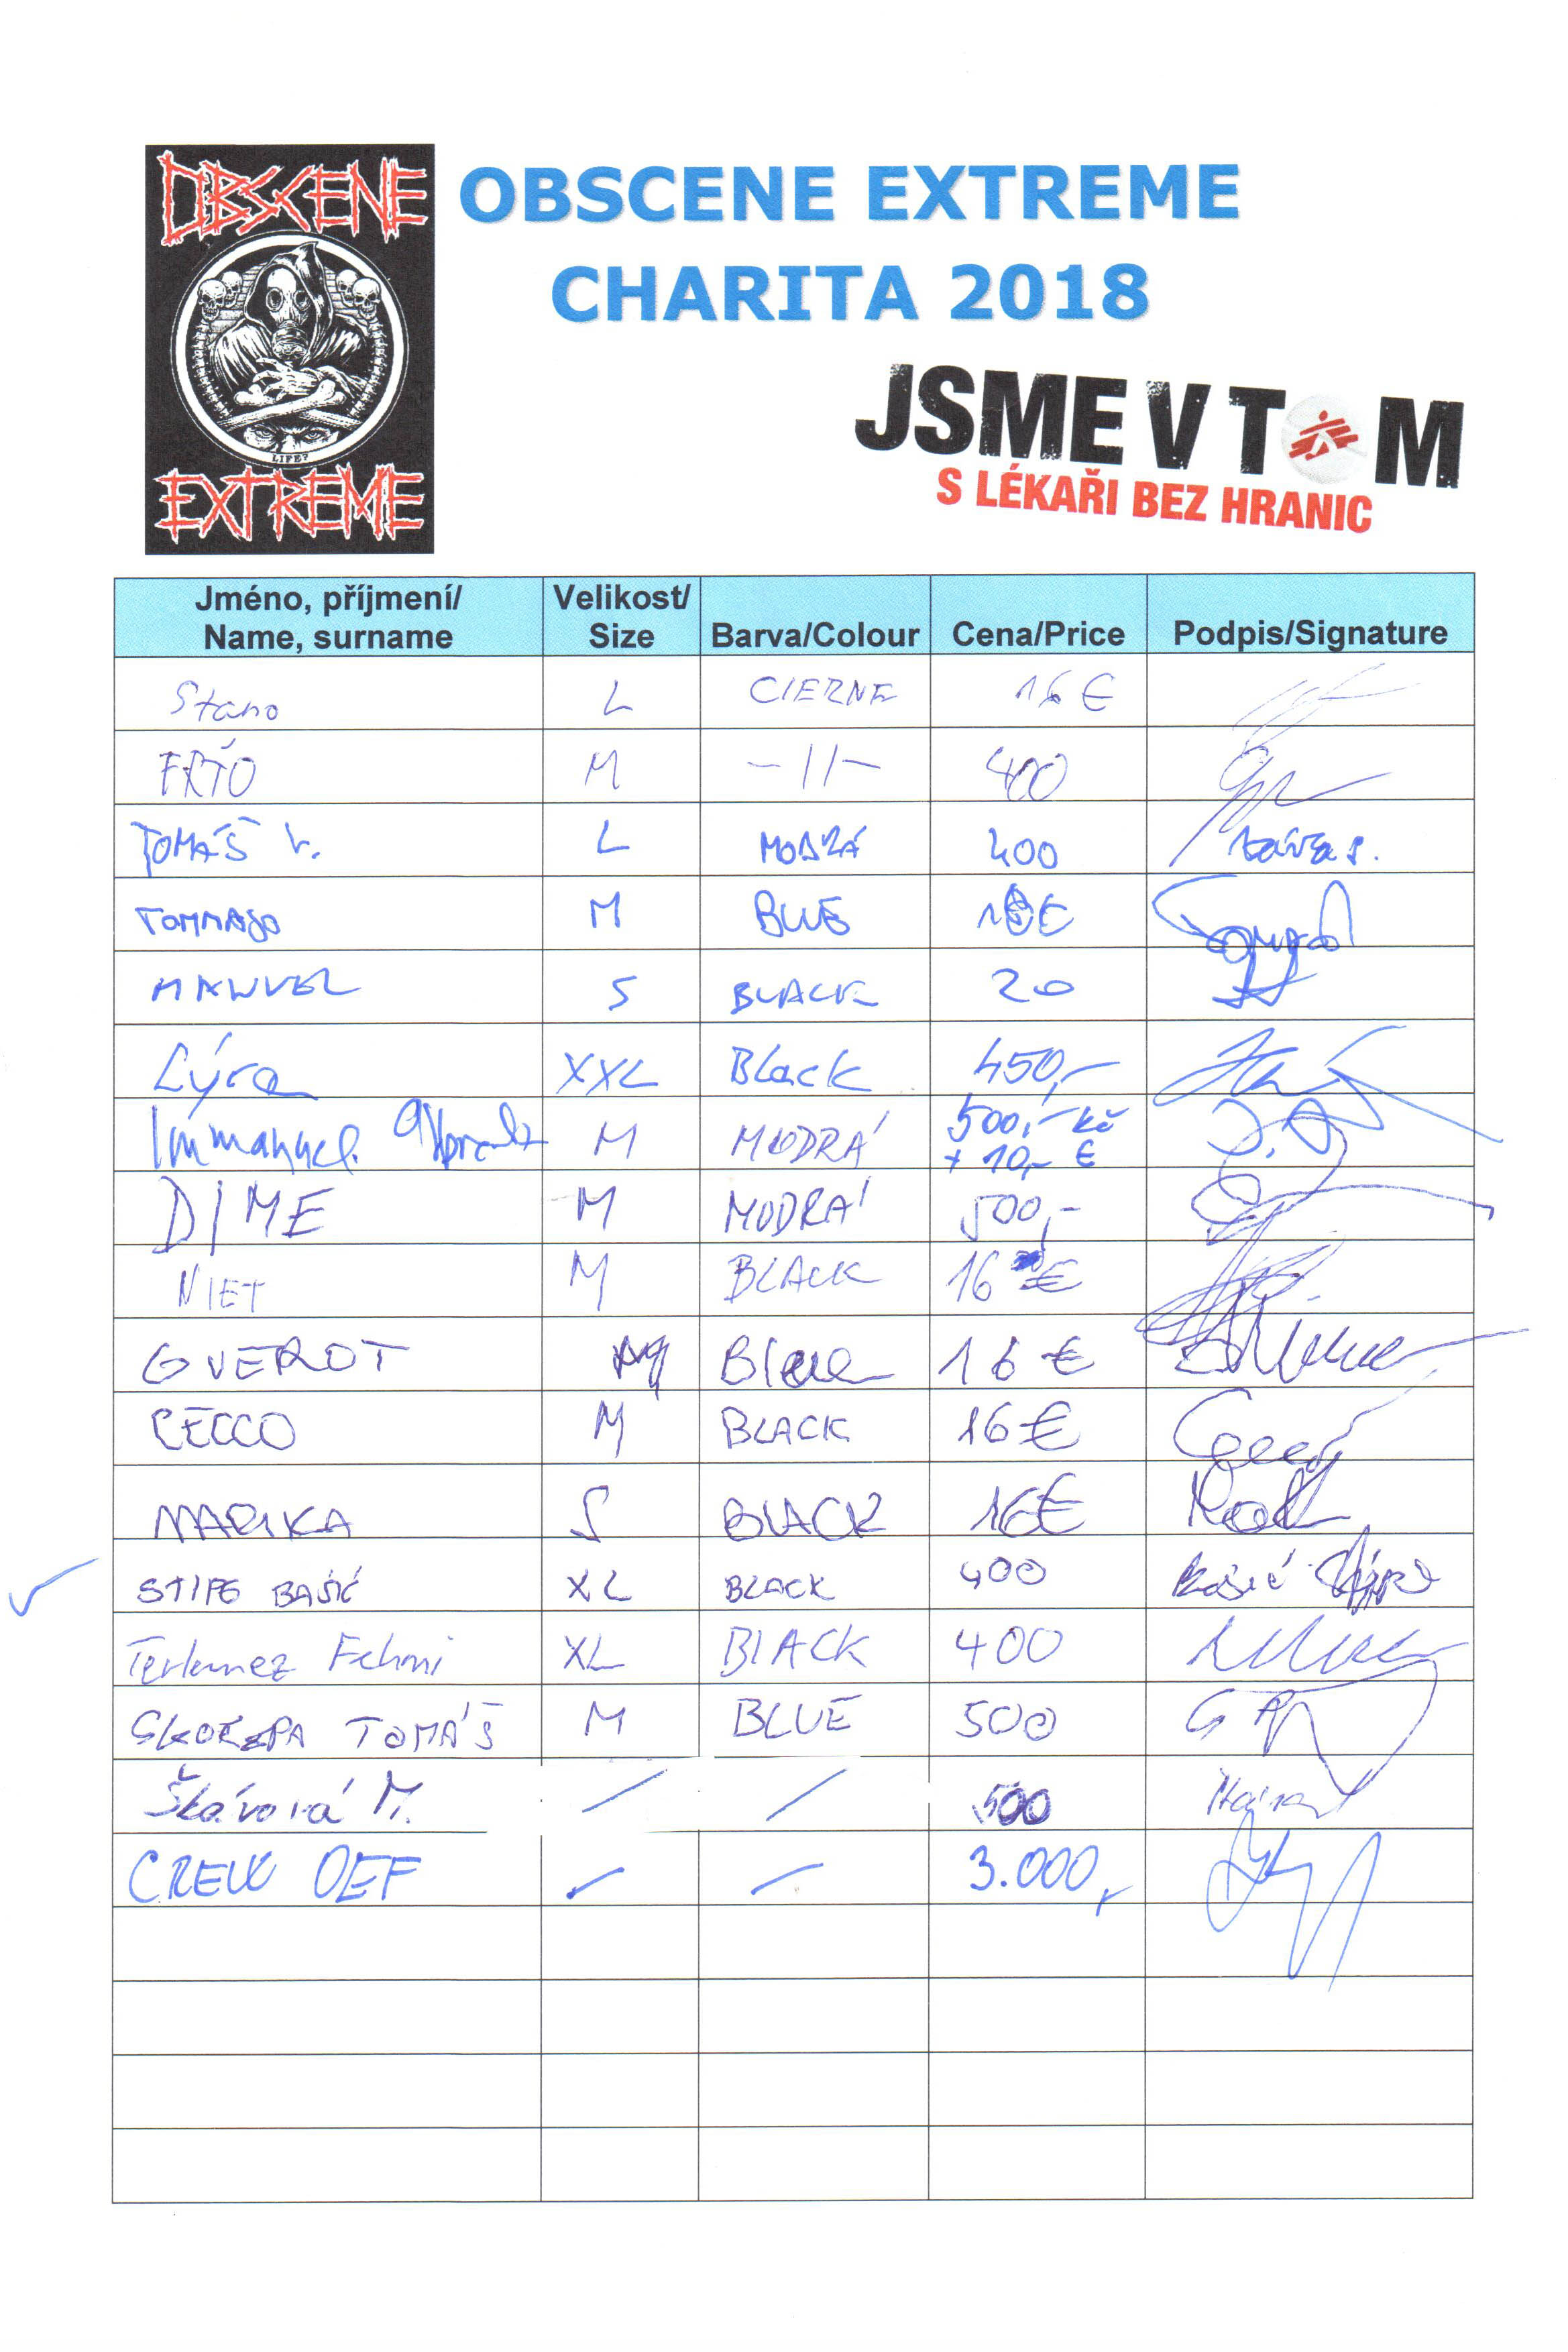 OBSCENE
LIFE?
EXTREME
OBSCENE EXTREME
CHARITA 2018
JSME V TOM
S LÉKAŘI BEZ HRANIC
Jméno, příjmení/ Velikost/
Name, surname Size Barva/Colour Cena/Price Podpis/Signature
Stano L CIERNE 16 €
M -11- 400
TOMÁŠ L MODRÁ 400
TOMMASO M BLUE €
MANUEL S BLACK 20
Lýra XXL Black 450,-
Immanuel M MODRÁ 500,- Kč
+ 10,- €
DIME M MODRÁ 500,-
NIET M BLACK 16 €
GVEROT Blue 16 €
CECCO M BLACK 16 €
MARIKA S BLACK 16€
STIPE BAŠIĆ XL BLACK 400 Bašić Stipe
Terlemez Fehmi XL BLACK 400
SKOŘEPA TOMÁŠ M BLUE 500
M. / / 500
CREW OEF - - 3.000,-